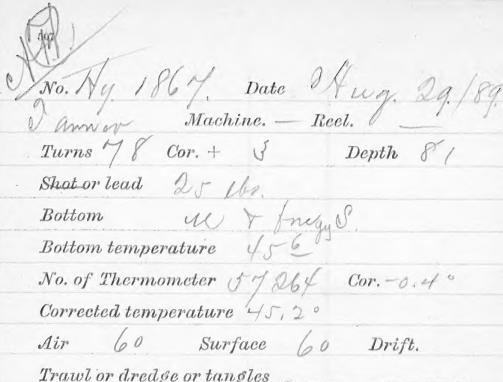 No. Hy. 1867. Date Aug. 29/89
Tanner Machine. — Reel. —
Turns 78 Cor. + 3 Depth 81
Shot or lead 25 lbs.
Bottom M & S.
Bottom temperature 45 6
No. of Thermometer 57264 Cor. -0.4°
Corrected temperature 45.2°
Air 60 Surface 60 Drift.
Trawl or dredge or tangles